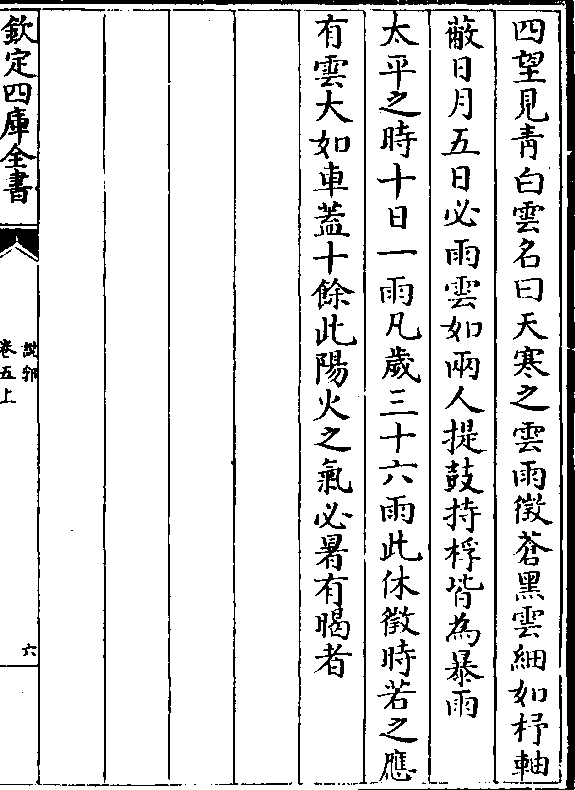 四望見青白雲名曰天寒之雲雨徵蒼黑雲細如杼軸
蔽日月五日必雨雲如兩人提鼓持桴皆為暴雨
太平之時十日一雨凡歲三十六雨此休徵時若之應
有雲大如車蓋十餘此陽火之氣必暑有暍者
欽定四庫全書
說郛
卷五上
六